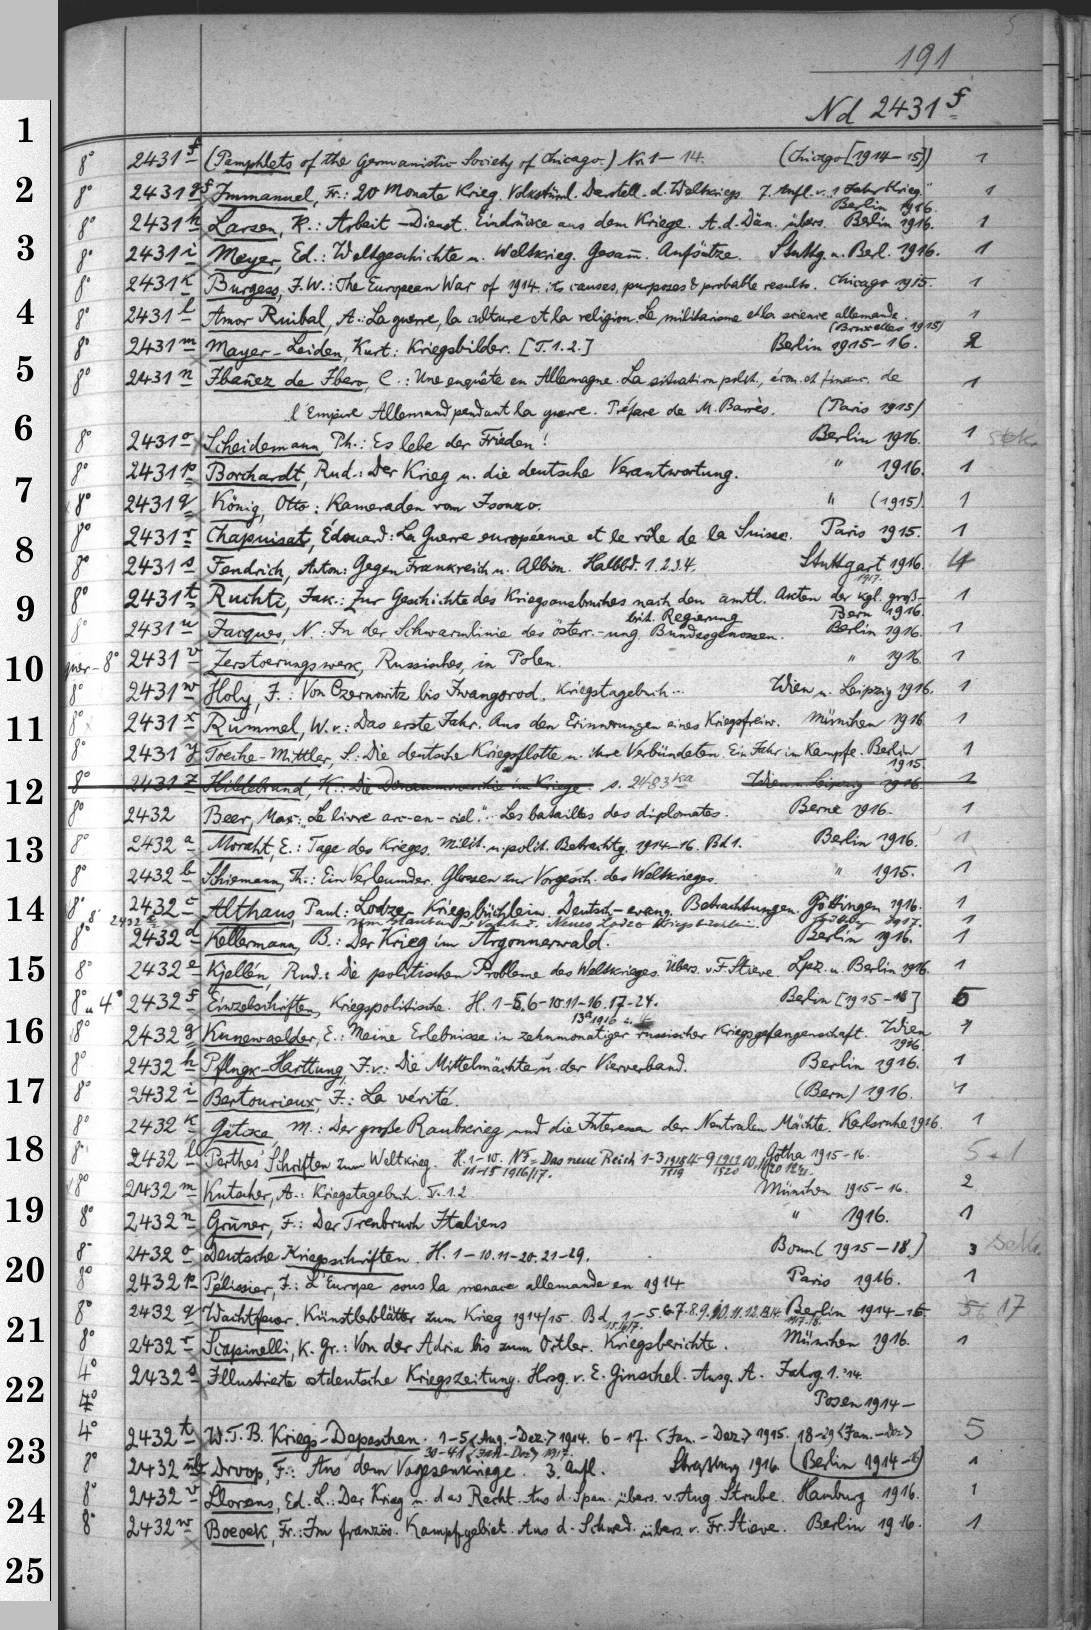 191
Nd 2431 f
1
8° 2431 f (Pamphlets of the Germanistic Society of Chicago.) Nr. 1–14. (Chicago [1914–15]) 1
2
8° 2431 g Immanuel, Fr.: 20 Monate Krieg. Volkstüml. Darstell. d. Weltkriegs 7. Aufl. v. "1 Jahr Krieg." 1
Berlin 1916.
8° 2431 h Larsen, K.: Arbeit – Dienst. Eindrücke aus dem Kriege. A. d. Dän. übers. Berlin 1916. 1
3
8° 2431 i Meyer, Ed.: Weltgeschichte u. Weltkrieg. Gesam̄. Aufsätze. Stuttg. u. Berl. 1916. 1
8° 2431 k Burgess, J. W.: The European War of 1914. its causes, purposes & probable results. Chicago 1915. 1
4
8° 2431 l Amor Ruibal, A.: La guerre, la culture et la religion. Le militarisme et la science allemande. 1
(Bruxelles 1915)
8° 2431 m Mayer-Leiden, Kurt: Kriegsbilder. [T. 1. 2.] Berlin 1915–16. 2
5
8° 2431 n Ibañez de Ibero, C.: Une enquête en Allemagne. La situation polit., écon. et financ. de 1
l'Empire Allemand pendant la guerre. Préface de M. Barrès. (Paris 1915)
6
8° 2431 o Scheidemann, Ph.: Es lebe der Frieden! Berlin 1916. 1
8° 2431 p Borchardt, Rud.: Der Krieg u. die deutsche Verantwortung. " 1916. 1
7
8° 2431 q König, Otto: Kameraden vom Isonzo. " (1915). 1
8° 2431 r Chapuisat, Édouard: La Guerre européenne et le rôle de la Suisse. Paris 1915. 1
8
8° 2431 s Fendrich, Anton: Gegen Frankreich u. Albion. Halbbd. 1. 2. 3. 4. Stuttgart 1916. 4
1917.
9
8° 2431 t Ruchti, Jak.: Zur Geschichte des Kriegsausbruches nach den amtl. Akten der kgl. groß- 1
brit. Regierung Bern 1916.
8° 2431 u Jacques, N.: In der Schwarmlinie des österr.-ung. Bundesgenossen. Berlin 1916. 1
10
quer-8° 2431 v Zerstoerungswerk, Russisches, in Polen. " 1916. 1
8° 2431 w Holy, J.: Von Czernowitz bis Iwangorod. Kriegstagebuch... Wien u. Leipzig 1916. 1
11
8° 2431 x Rummel, W. v.: Das erste Jahr. Aus den Erinnerungen eines Kriegsfreiw. München 1916 1
8° 2431 y Toeche-Mittler, S.: Die deutsche Kriegsflotte u. ihre Verbündeten. Ein Jahr im Kampfe. Berlin 1
1915
12
8° 2431 z Hildebrand, K.: Die Donaumonarchie im Kriege. s. 2483 ka Wien u. Leipzig 1916 1
8° 2432 Beer, Max: "Le livre arc-en-ciel". Les batailles des diplomates. Berne 1916. 1
13
8° 2432 a Moraht, E.: Tage des Krieges. Milit. u. polit. Betrachtg. 1914–16. Bd 1. Berlin 1916. 1
8° 2432 b Schiemann, Th.: Ein Verleumder. Glossen zur Vorgesch. des Weltkrieges. " 1915. 1
14
8° 2432 c Althaus, Paul: Lodzer Kriegsbüchlein. Deutsch-evang. Betrachtungen. Göttingen 1916. 1
8° Neues Lodzer Kriegsbüchlein. 1917. 1
8° 2432 d Kellermann, B.: Der Krieg im Argonnerwald. Berlin 1916. 1
15
8° 2432 e Kjellén, Rud.: Die politischen Probleme des Weltkrieges. Übers. v. F. Stieve. Lpz. u. Berlin 1916. 1
8° u 4° 2432 f Einzelschriften, Kriegspolitische. H. 1–5. 6–10. 11–16. 17–24. Berlin [1915–18] 5
16
8° 2432 g Kunewaelder, E.: Meine Erlebnisse in zehnmonatiger russischer Kriegsgefangenschaft. Wien 1
1916
8° 2432 h Pflugk-Harttung, J. v.: Die Mittelmächte u. der Vierverband. Berlin 1916. 1
17
8° 2432 i Bertourieux, J.: La vérité. (Bern) 1916. 1
8° 2432 k Götzke, M.: Der große Raubkrieg und die Interessen der Neutralen Mächte. Karlsruhe 1916. 1
18
8° 2432 l Perthes' Schriften zum Weltkrieg. H. 1–10. NF = Das neue Reich 1–3 Gotha 1915–16.
11–15 1916/17.
8° 2432 m Kutscher, A.: Kriegstagebuch. T. 1. 2 München 1915–16. 2
19
8° 2432 n Grüner, F.: Der Treubruch Italiens " 1916. 1
8° 2432 o Deutsche Kriegsschriften. H. 1–10. 11–20. 21–29. Bonn [1915–18.] 3
20
8° 2432 p Pélissier, J.: L'Europe sous la menace allemande en 1914 Paris 1916. 1
8° 2432 q Wachtfeuer. Künstlerblätter zum Krieg 1914/15 Bd 1–5. 6. 7. 8. 9. 10. 11. 12. 13. 14. Berlin 1914–15 17
21
8° 2432 r Scapinelli, K. Gr.: Von der Adria bis zum Ortler. Kriegsberichte. München 1916. 1
4° 2432 s Illustrierte ostdeutsche Kriegszeitung. Hrsg. v. E. Ginschel. Ausg. A. Jahrg. 1. '14.
22
4° Posen 1914–
4° 2432 t W.T.B. Kriegs-Depeschen. 1–5 <Aug.–Dez.> 1914. 6–17. <Jan.–Dez.> 1915. 18–29 <Jan.–Dez> 5
30–41 <Jan–Dez> 1917. (Berlin 1914–)
23
8° 2432 u Droop, F.: Aus dem Vogesenkriege. 3. Aufl. Straßburg 1916. 1
8° 2432 v Llorens, Ed. L.: Der Krieg u. das Recht. Aus d. Span. übers. v. Aug. Strube. Hamburg 1916. 1
24
8° 2432 w Boeock, Fr.: Im französ. Kampfgebiet. Aus d. Schwed. übers. v. Fr. Stieve. Berlin 1916. 1
25